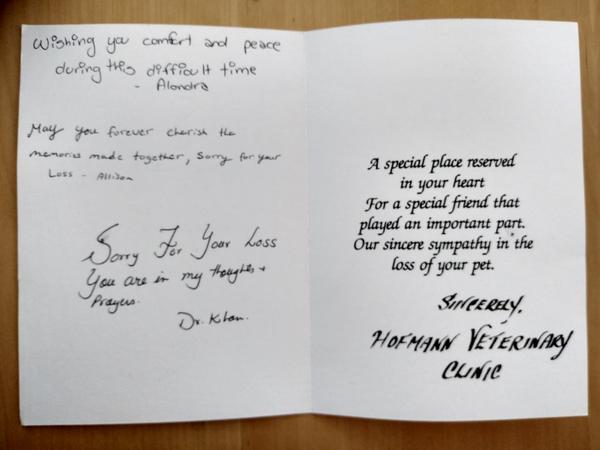 Wishing you comfort and peace
during this difficult time
- Alondra
May you forever cherish the
memories made together, Sorry for your
Loss - Allison
Sorry For Your Loss
You are in my thoughts +
Prayers.
Dr. Khan.
A special place reserved
in your heart
For a special friend that
played an important part.
Our sincere sympathy in the
loss of your pet.
SINCERELY,
HOFMANN VETERINARY
CLINIC